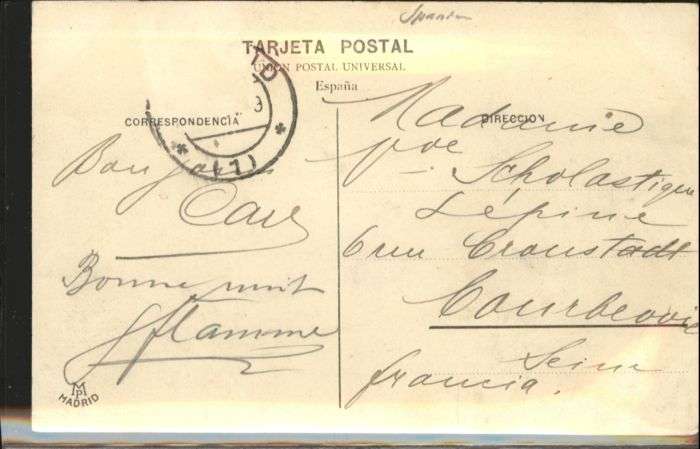 Spanien
TARJETA POSTAL
UNION POSTAL UNIVERSAL
España
CORRESPONDENCIA
DIRECCION
Bon jour
Bonne nuit
Madame
Scholastique
Lépine
6 rue Cronstadt
Courbevoie
Seine
Francia.
ID
(1)
MADRID